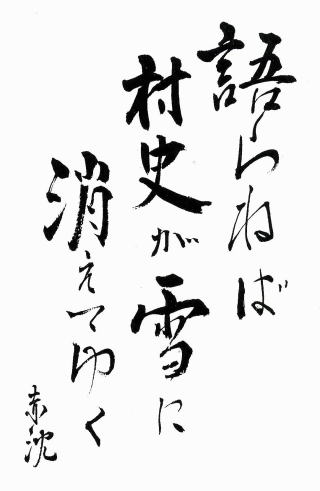 語らねば
村史が雪に
消えてゆく
赤沈